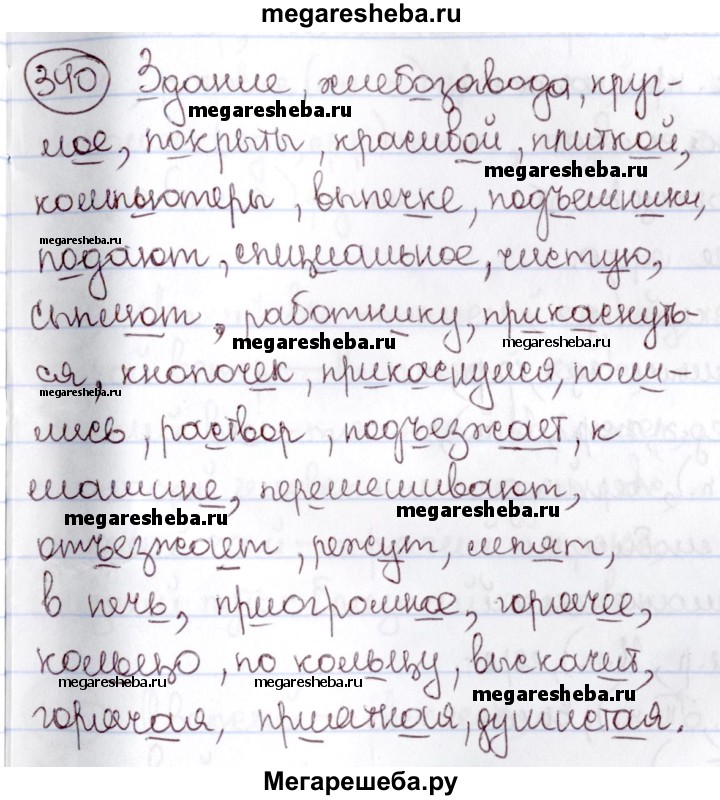 megaresheba.ru
340 Здание, хлебозавода, круг-
megaresheba.ru
лое, покрыты, красивой, плиткой,
megaresheba.ru
компьютеры, выпечке, подъемники,
megaresheba.ru
подают, специальное, чистую,
сыплют, работнику, прикаснуть-
megaresheba.ru
megaresheba.ru
ся, кнопочек, прикаснулся, поли-
megaresheba.ru
лись, раствор, подъезжает, к
megaresheba.ru
машине, перемешивают,
megaresheba.ru
megaresheba.ru
отъезжает, режут, лепят,
в печь, приогромное, горячее,
megaresheba.ru
кольцо, по кольцу, выскачит,
megaresheba.ru
megaresheba.ru
megaresheba.ru
горячая, приятная, душистая.
Мегарешеба.ру